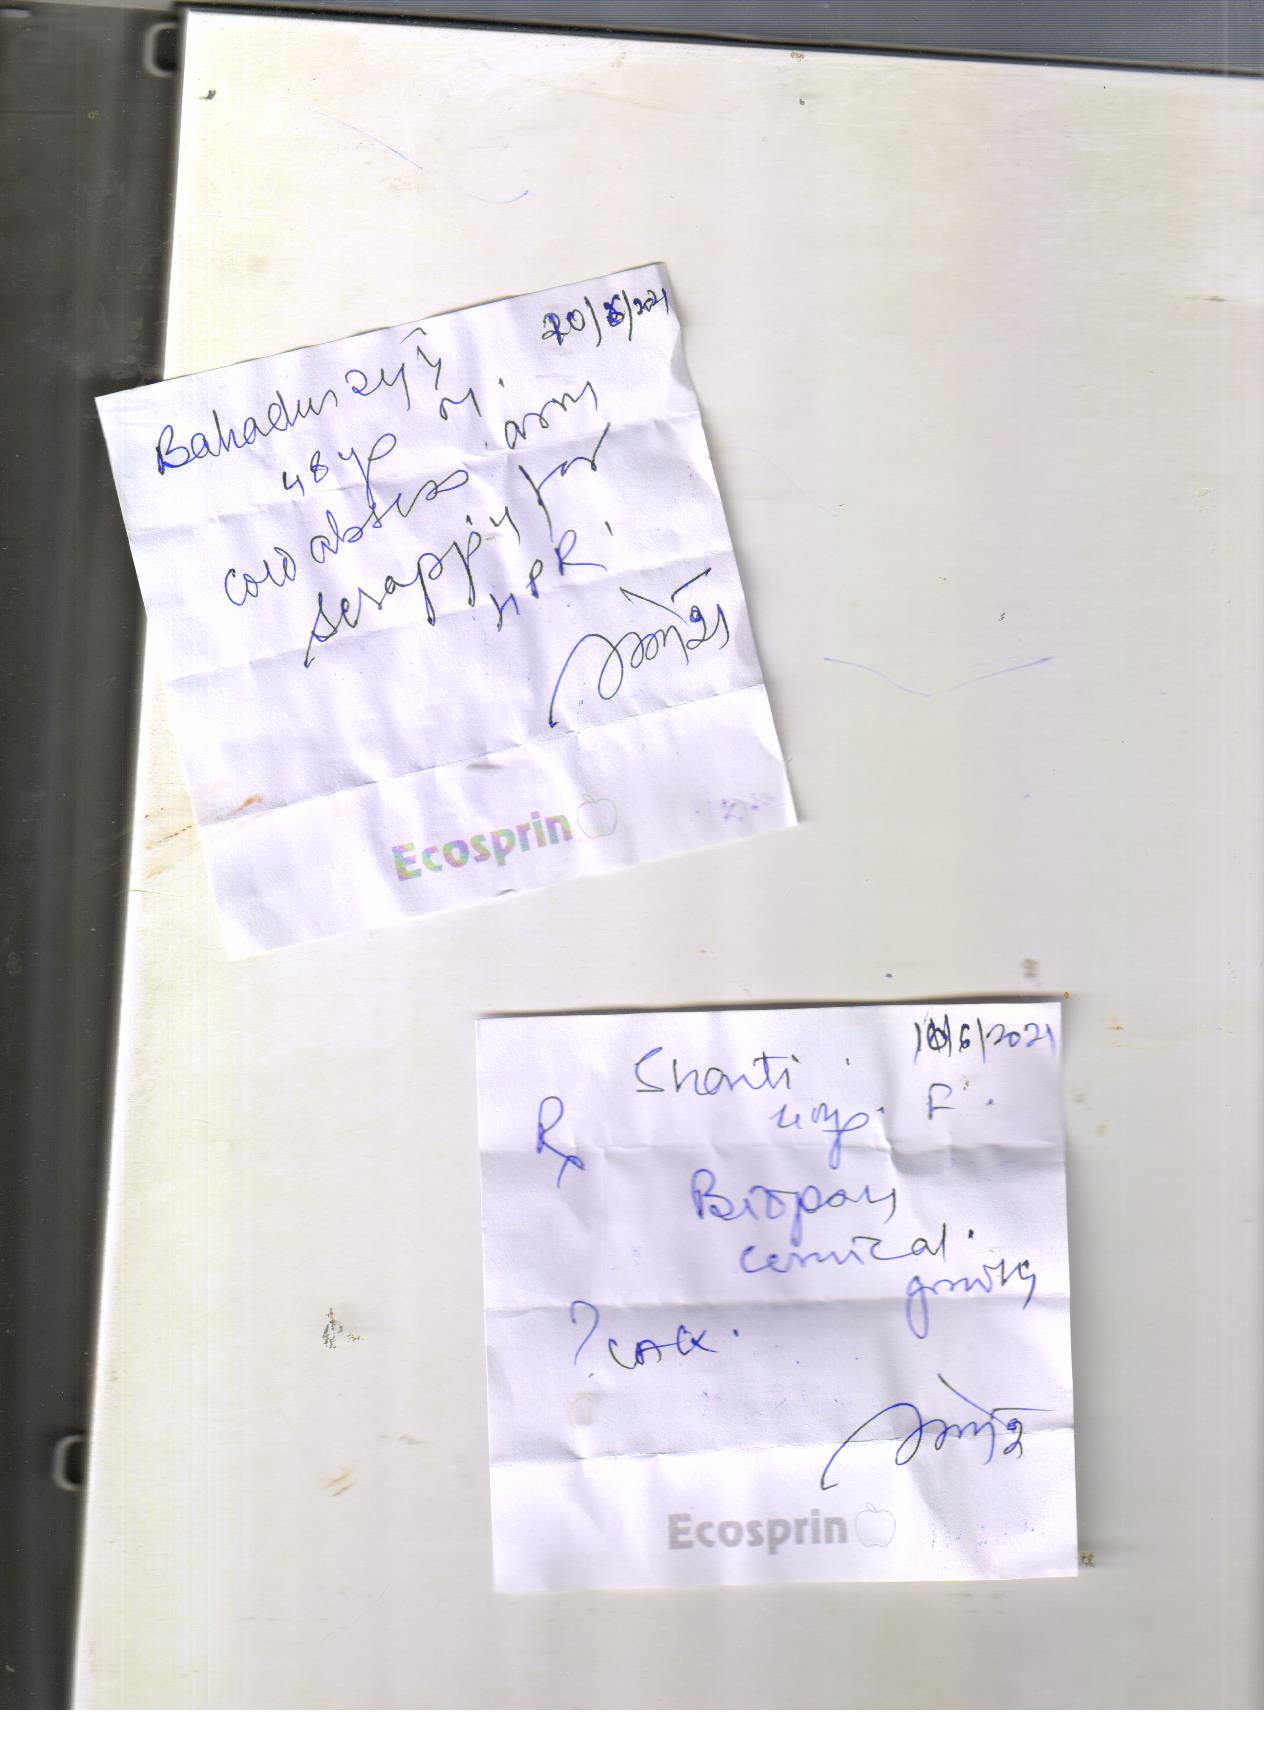 20/6/2021
Bahadur
48 yr M.
cold absess arm
scrapping for
HPR.
Ecosprin
10/6/2021
Shanti
Rx
F.
Biopsy
cervical
growth
? CA CX.
Ecosprin